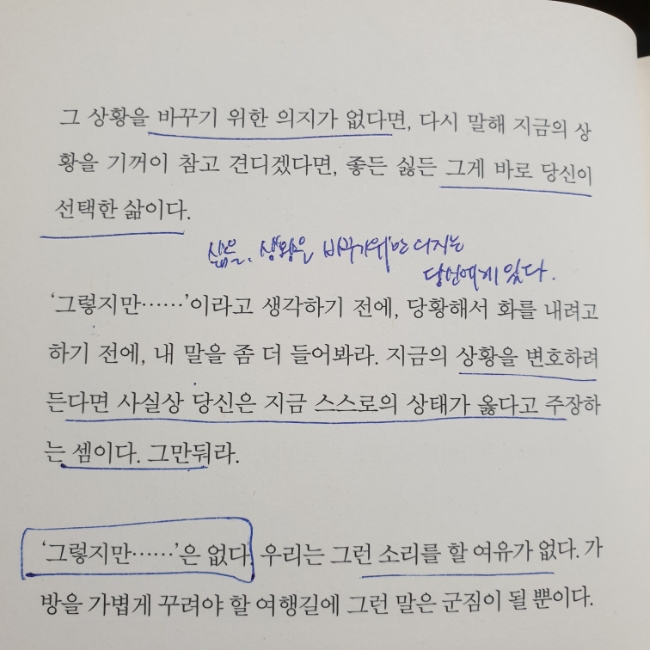 그 상황을 바꾸기 위한 의지가 없다면, 다시 말해 지금의 상
황을 기꺼이 참고 견디겠다면, 좋든 싫든 그게 바로 당신이
선택한 삶이다.
삶은, 상황을 바꾸기 위한 의지는
당신에게 있다.
‘그렇지만……’이라고 생각하기 전에, 당황해서 화를 내려고
하기 전에, 내 말을 좀 더 들어봐라. 지금의 상황을 변호하려
든다면 사실상 당신은 지금 스스로의 상태가 옳다고 주장하
는 셈이다. 그만둬라.
‘그렇지만……’은 없다. 우리는 그런 소리를 할 여유가 없다. 가
방을 가볍게 꾸려야 할 여행길에 그런 말은 군짐이 될 뿐이다.